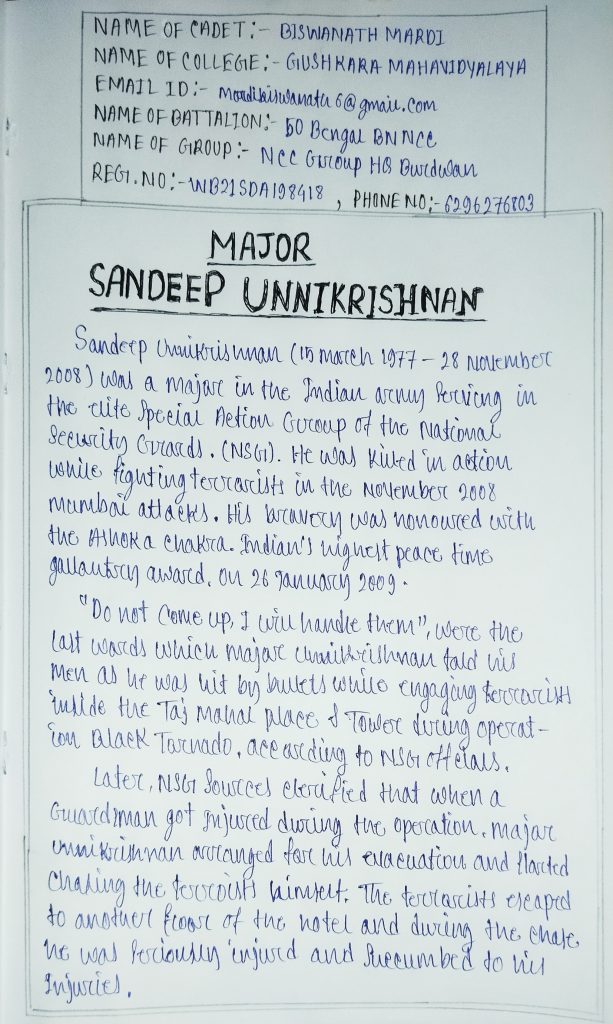 NAME OF CADET:- BISWANATH MARDI
NAME OF COLLEGE:- GUSHKARA MAHAVIDYALAYA
EMAIL ID:- mardibiswanath6@gmail.com
NAME OF BATTALION:- 50 Bengal BN NCC
NAME OF GROUP:- NCC Group HQ Burdwan
REGI.NO:-WB21SDA198418 , PHONE NO:-6296276803
MAJOR
SANDEEP UNNIKRISHNAN
Sandeep Unnikrishnan (15 march 1977 – 28 November
2008) was a major in the Indian army Serving in
the elite Special Action Group of the National
Security Guards. (NSG). He was Killed in action
while fighting terrorists in the November 2008
mumbai attacks. His bravery was honoured with
the Ashoka Chakra. Indian's highest peace time
gallantry award. on 26 January 2009.
"Do not come up, I will handle them", were the
last words which major unnikrishnan told his
men as he was hit by bullets while engaging terrorists
inside the Taj Mahal place & Tower during operat-
ion Black Tarnado, according to NSG offcials.
Later, NSG Sources clerified that when a
Guardsman got Injured during the operation. major
unnikrishnan arranged for his evacuation and Started
Chasing the terroists himself. The terrorists escaped
to another floor of the hotel and during the chase
he was Seriously injurd and Succumbed to his
Injuries.